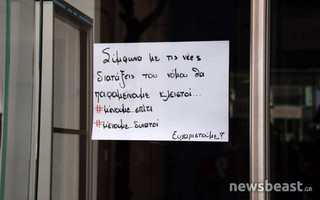 Σύμφωνα με τις νέες
διατάξεις του νόμου θα
παραμείνουμε κλειστοί...
#μένουμε σπίτι
#μένουμε δυνατοί
Ευχαριστούμε♡
newsbeast.GR